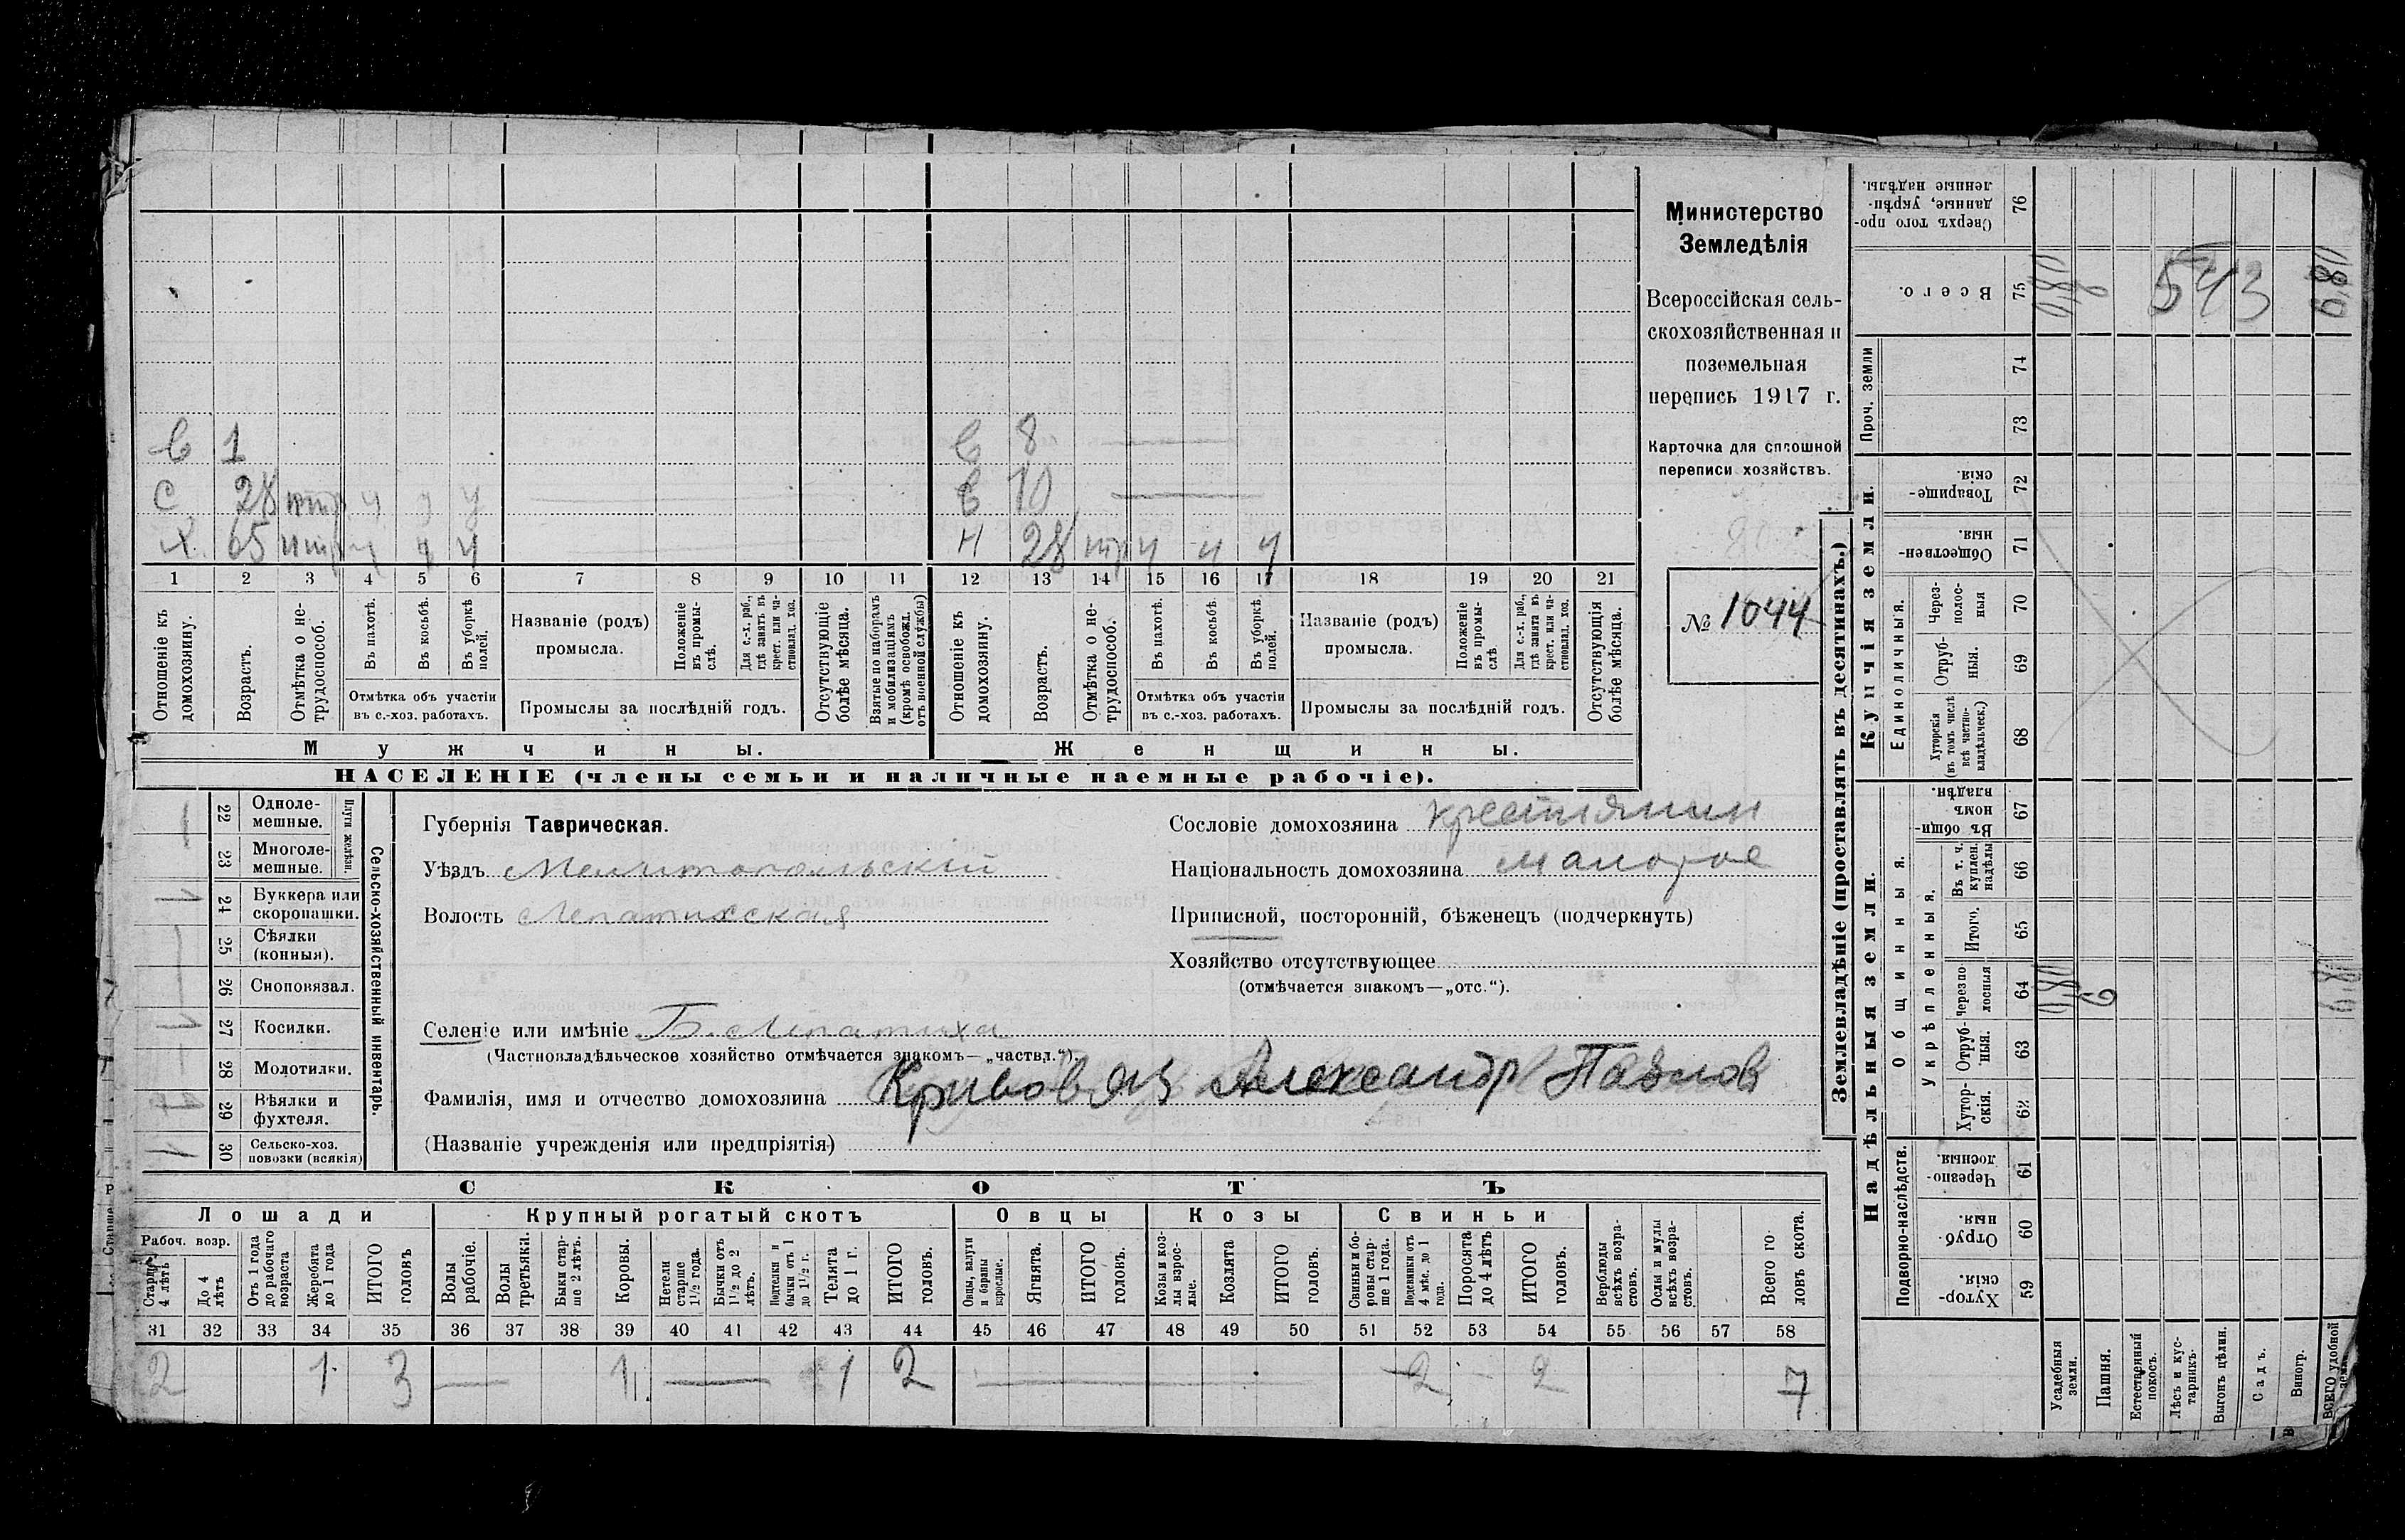 Министерство
Земледѣлія
Всероссійская сель-
скохозяйственная и
поземельная
перепись 1917 г.
Карточка для сплошной
переписи хозяйствъ.
№ 1044
в 1
с 28
х 65
в 8
в 10
н 28
1 2 3 4 5 6 7 8 9 10 11 12 13 14 15 16 17 18 19 20 21
Отношеніе къ домохозяину.
Возрастъ.
Отмѣтка о не-трудоспособ.
Въ пахотѣ.
Въ косьбѣ.
Въ уборкѣ полей.
Отмѣтка объ участіи
въ с.-хоз. работахъ.
Названіе (родъ)
промысла.
Положеніе въ промы-слѣ.
Для с.-х. раб., гдѣ занятъ въ крест. или ча-стновлад. хоз.
Промыслы за послѣдній годъ.
Отсутствующіе болѣе мѣсяца.
Взятые по наборамъ и мобилизаціямъ (кромѣ освобожд. отъ военной службы)
Отношеніе къ домохозяину.
Возрастъ.
Отмѣтка о не-трудоспособ.
Въ пахотѣ.
Въ косьбѣ.
Въ уборкѣ полей.
Отмѣтка объ участіи
въ с.-хоз. работахъ.
Названіе (родъ)
промысла.
Положеніе въ промы-слѣ
Для с.-х. раб., гдѣ занята въ крест. или ча-стновлад. хоз.
Промыслы за послѣдній годъ.
Отсутствующія болѣе мѣсяца.
Мужчины.
Женщины.
НАСЕЛЕНІЕ (члены семьи и наличные наемные рабочіе).
Сельско-хозяйственный инвентарь.
Плуги желѣзн.
22 Одноле-мешные.
23 Многоле-мешные.
24 Буккера или скоропашки.
25 Сѣялки (конныя).
26 Сноповязал.
27 Косилки.
28 Молотилки.
29 Вѣялки и фухтеля.
30 Сельско-хоз. повозки (всякія)
Губернія Таврическая.
Уѣздъ Мелитопольскій
Волость Лепатихская
Селеніе или имѣніе Б. Лепатиха
(Частновладѣльческое хозяйство отмѣчается знакомъ—„частвл.“)
Фамилія, имя и отчество домохозяина Кривовяз Александр Павлов
(Названіе учрежденія или предпріятія)
Сословіе домохозяина крестьянин
Національность домохозяина малорос
Приписной, посторонній, бѣженецъ (подчеркнуть)
Хозяйство отсутствующее
(отмѣчается знакомъ—„отс.“).
СКОТЪ
Лошади
Крупный рогатый скотъ
Овцы
Козы
Свиньи
Рабоч. возр.
Старше 4 лѣтъ
До 4 лѣтъ
Отъ 1 года до рабочаго возраста
Жеребята до 1 года
ИТОГО головъ
Волы рабочіе.
Волы третьяки.
Быки стар-ше 2 лѣтъ.
Коровы.
Нетели старше 1½ года.
Бычки отъ 1½ до 2 лѣтъ.
Подтелки и бычки отъ 1 до 1½ г.
Телята до 1 г.
ИТОГО головъ.
Овцы, валухи и бараны взрослые.
Ягнята.
ИТОГО головъ.
Козы и коз-лы взрос-лые.
Козлята
ИТОГО головъ.
Свиньи и бо-ровы стар-ше 1 года.
Подсвинки отъ 4 мѣс. до 1 года.
Поросята до 4 лѣтъ
ИТОГО головъ.
Верблюды всѣхъ возра-стовъ.
Ослы и мулы всѣхъ возра-стовъ.
Всего го-ловъ скота.
31 32 33 34 35 36 37 38 39 40 41 42 43 44 45 46 47 48 49 50 51 52 53 54 55 56 57 58
2 1 3 1 1 2 2 2 7
Землевладѣніе (проставлять въ десятинахъ.)
Надѣльныя земли.
Купчія земли.
Проч. земли
Подворно-наслѣдств.
Общинныя.
Укрѣпленныя.
Единоличныя.
Сверхъ того про-данные, укрѣп-ленные надѣлы.
76
Всего.
75
74
73
Товарище-скія.
72
Обществен-ныя.
71
Через-полос-ныя
70
Отруб-ныя.
69
Хуторскія (въ томъ числѣ всѣ частно-владѣльческ.)
68
Въ общин-номъ владѣн.
67
Въ т. ч. куплен. надѣлы
66
Итого.
65
Черезпо-лосныя
64
Отруб-ныя.
63
Хутор-скія.
62
Черезпо-лосныя.
61
Отруб-ныя.
60
Хутор-скія.
59
Усадебныя земли.
Пашня.
Естественный покосъ.
Лѣсъ и кус-тарникъ.
Выгонъ цѣлин.
Садъ.
Виногр.
ВСЕГО удобной
543